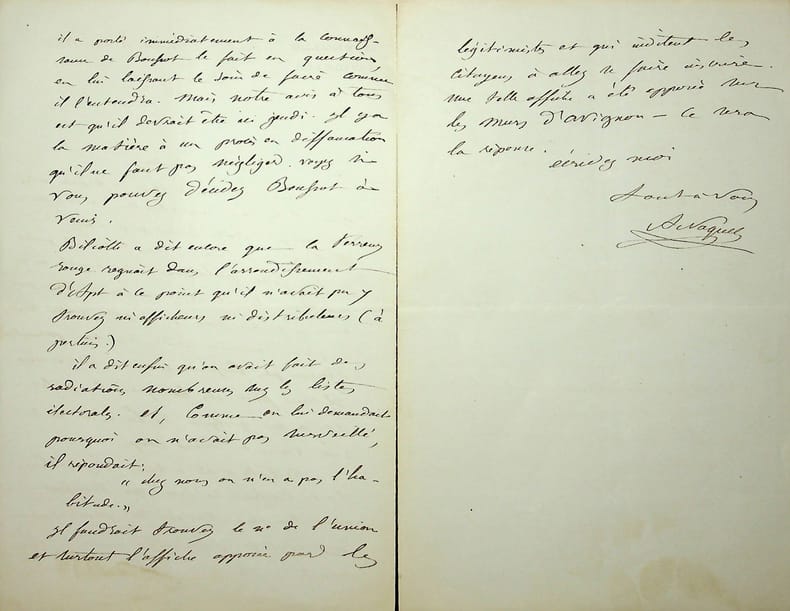 il a porté immédiatement à la connais-
sance de Bonfrot le fait en question,
en lui laissant le soin de faire comme
il l'entendra. Mais notre avis à tous
est qu'il devrait être ici jeudi. Il y a
la matière à un procès en diffamation
qu'il ne faut pas négliger. voyez si
vous pouvez décider Bonfrot à
venir.
Biliotti a dit encore que la Terreur
rouge régnait dans l'arrondissement
d'Apt à ce point qu'il n'avait pu y
trouver ni afficheurs ni distributeurs (à
pertuis.)
il a dit enfin qu'on avait fait des
radiations nombreuses sur les listes
électorales. et, comme on lui demandait
pourquoi on n'avait pas surveillé,
il répondait:
" chez nous on n'en a pas l'ha-
bitude. "
Il faudrait trouver le no de l'union
et surtout l'affiche apposée par les
légitimistes et qui invitent les
citoyens à aller se faire inscrire.
une telle affiche a été apposée sur
les murs d'avignon — ce sera
la réponse.
écrivez moi
tout à vous
A Naquet